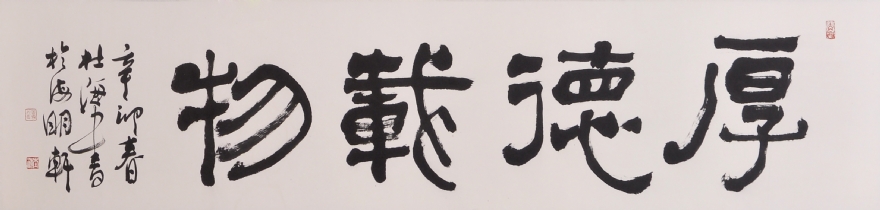 厚德載物
辛卯春
杜海春書
於海明軒